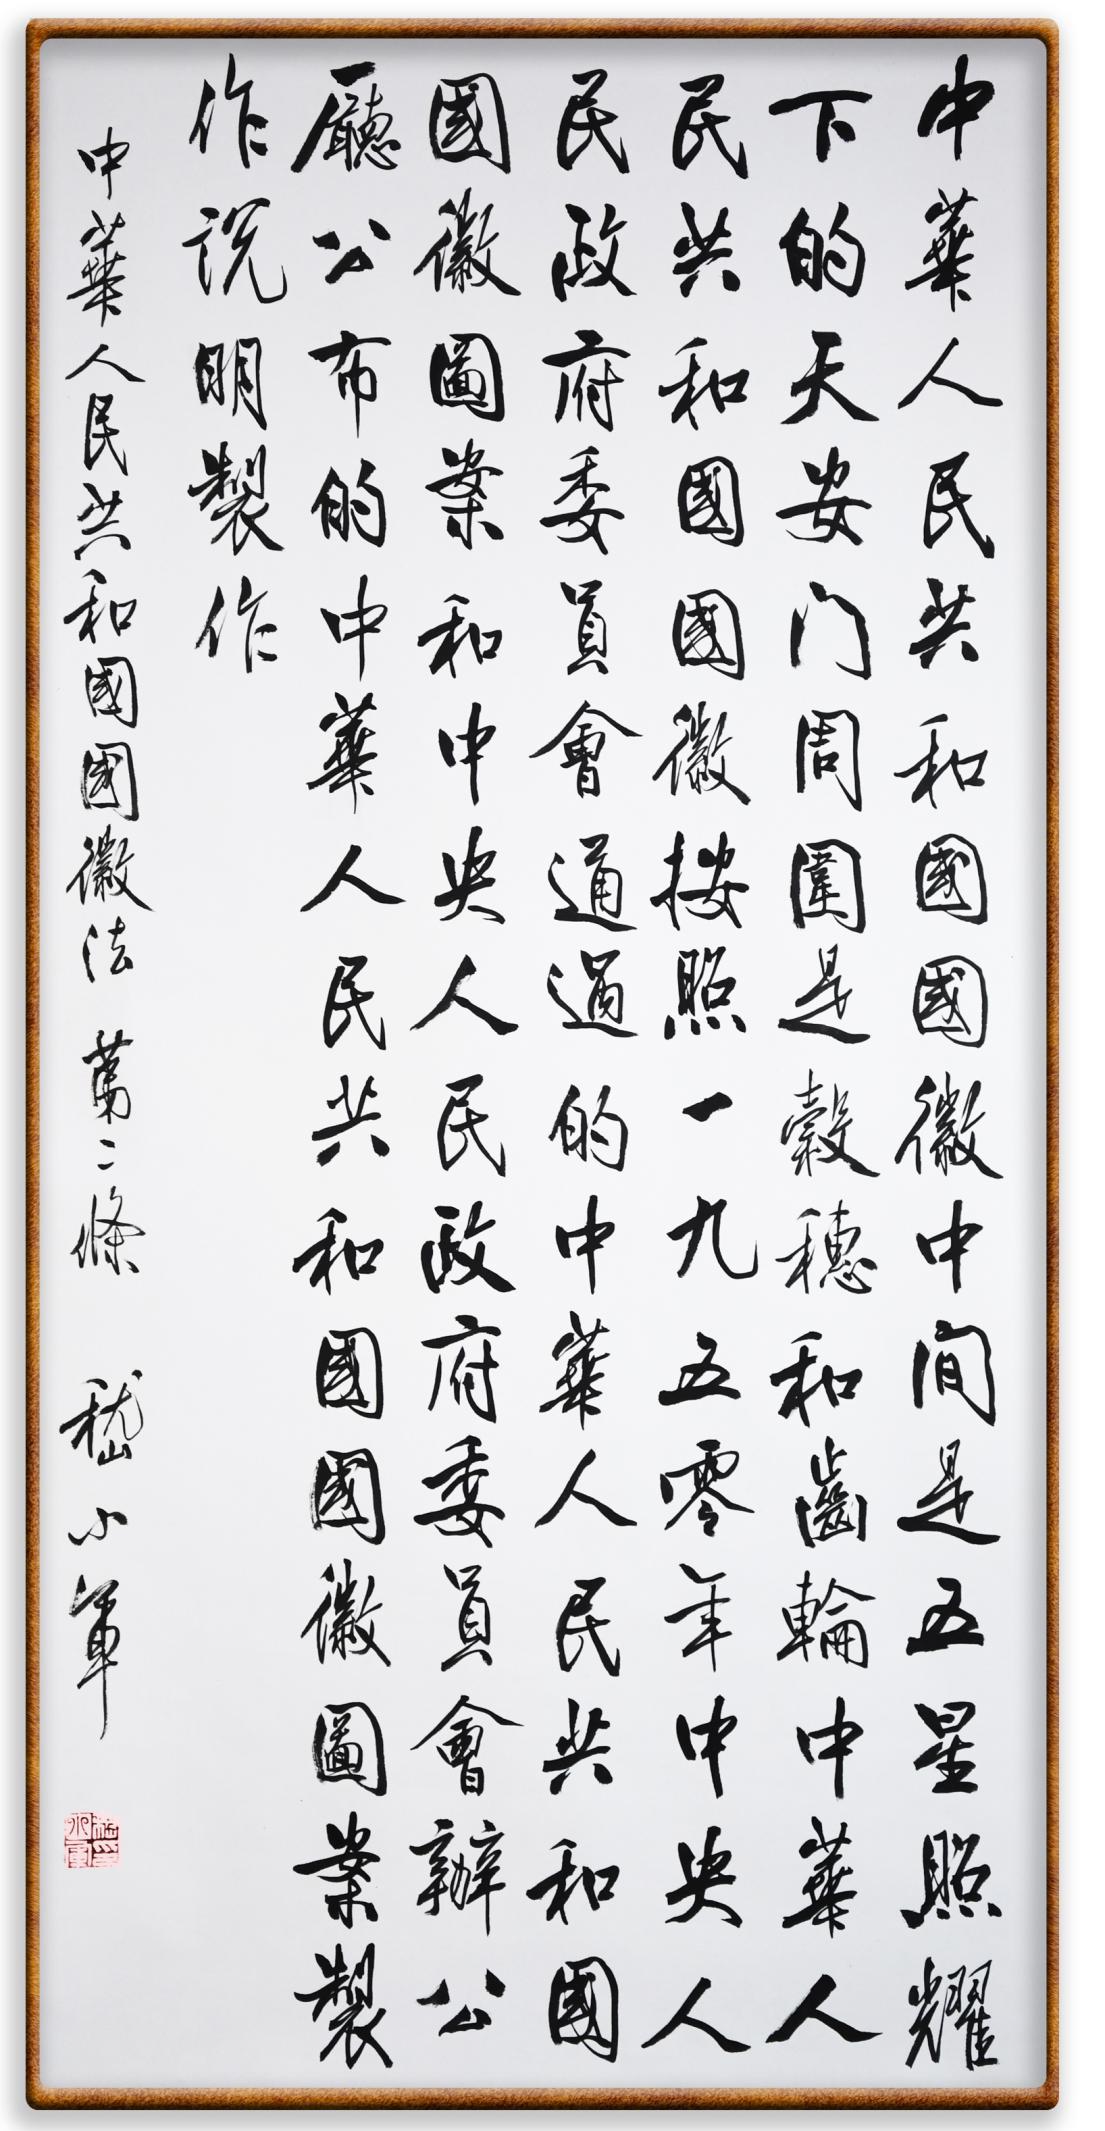 中華人民共和國國徽中间是五星照耀
下的天安门周圍是穀穗和齒輪中華人
民共和國國徽按照一九五零年中央人
民政府委員會通過的中華人民共和國
國徽圖案和中央人民政府委員會辦公
廳公布的中華人民共和國國徽圖案製
作说明製作
中華人民共和國國徽法 第二條 嵇小軍